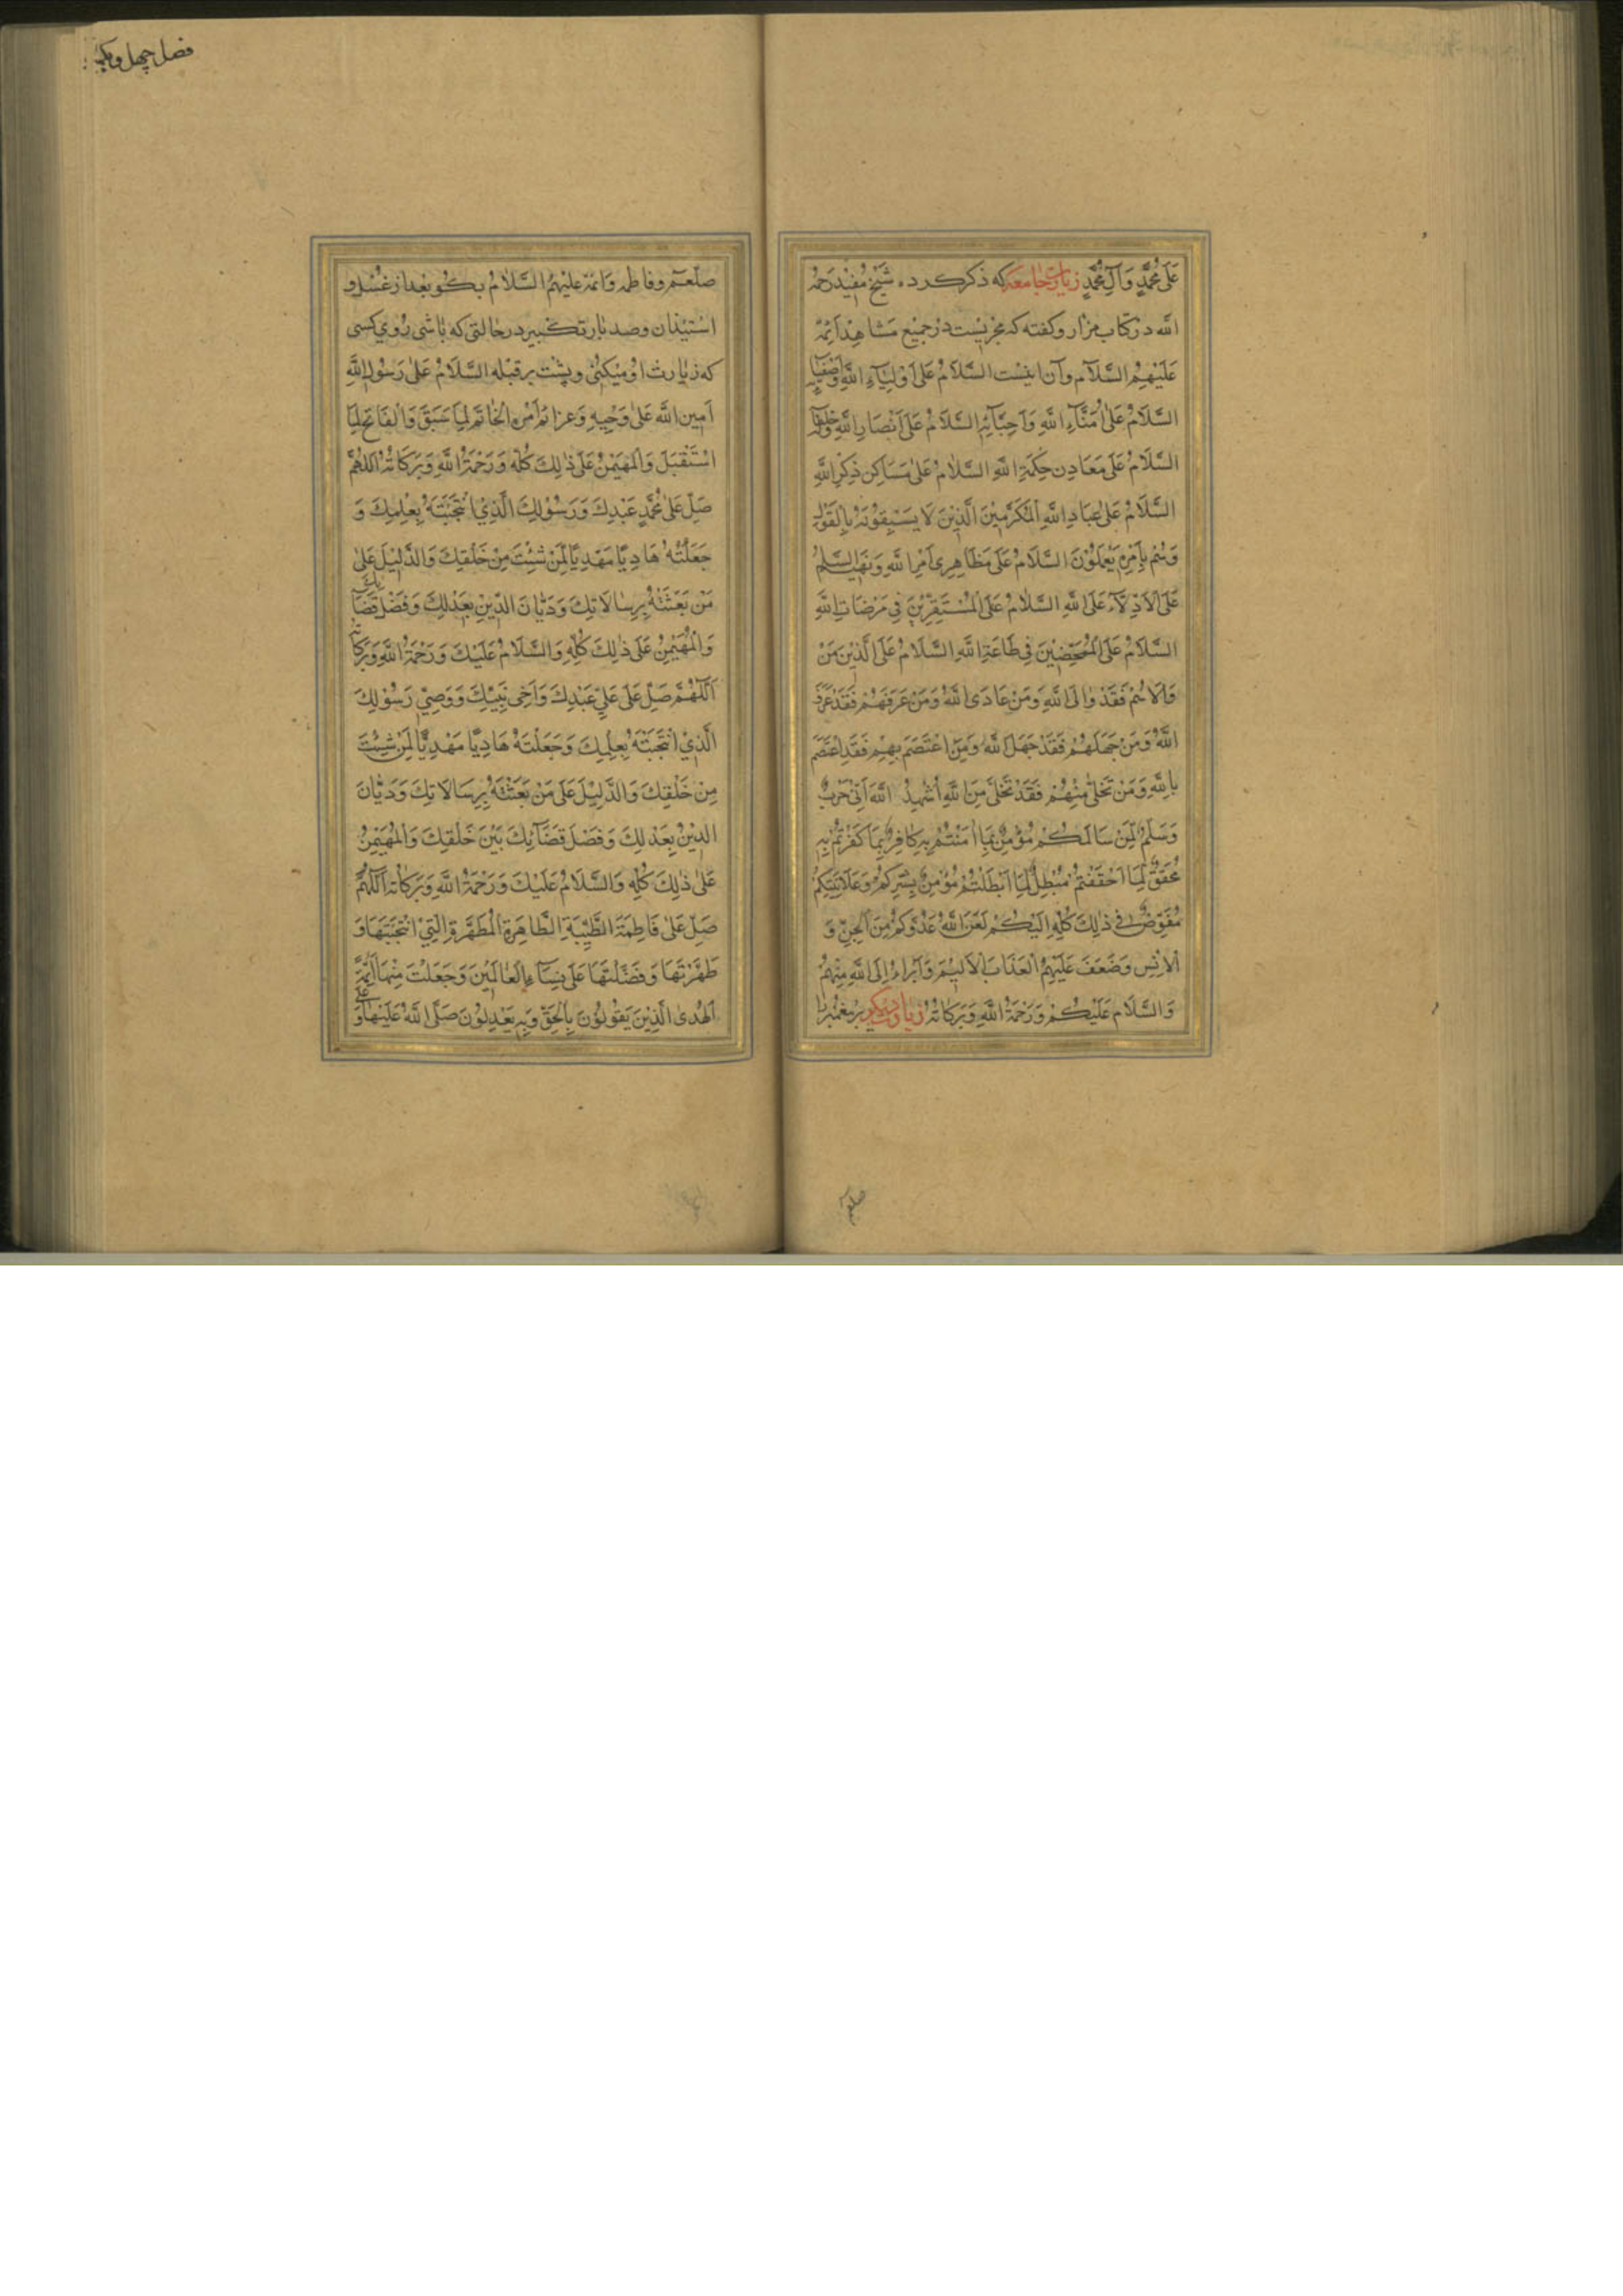 عَلَى مُحَمَّدٍ وَآلِ مُحَمَّدٍ زیارت جامعه که ذکر کرده شیخ مفید رحمه
الله در کتاب مزار و گفته که مجزیست در جمیع مشاهد ائمّه
عَلَيْهِمُ السَّلَام وآن اینست السَّلَامُ عَلَى أَوْلِيَآءِ اللَّهِ وَأَصْفِيَآئِهِ
السَّلَامُ عَلَى أُمَنَآءِ اللَّهِ وَأَحِبَّآئِهِ السَّلَامُ عَلَى أَنْصَارِ اللَّهِ وَخُلَفَآئِهِ
السَّلَامُ عَلَى مَعَادِنِ حِكْمَةِ اللَّهِ السَّلَامُ عَلَى مَسَاكِنِ ذِكْرِ اللَّهِ
السَّلَامُ عَلَى عِبَادِ اللَّهِ الْمُكَرَّمِينَ الَّذِينَ لَا يَسْبِقُونَهُ بِالْقَوْلِ
وَهُمْ بِأَمْرِهِ يَعْمَلُوْنَ السَّلَامُ عَلَى مَظَاهِرِى أَمْرِ اللَّهِ وَنَهْيِهِ السَّلَامُ
عَلَى الْأَدِلَّاءِ عَلَى اللَّهِ السَّلَامُ عَلَى الْمُسْتَقِرِّيْنَ فِي مَرْضَاتِ اللَّهِ
السَّلَامُ عَلَى الْمُمَحَّضِينَ فِي طَاعَةِ اللَّهِ السَّلَامُ عَلَى الَّذِيْنَ مَنْ
وَالَاهُمْ فَقَدْ وَالَى اللَّهَ وَمَنْ عَادَى اللَّهَ وَمَنْ عَرَفَهُمْ فَقَدْ عَرَفَ
اللَّهَ وَمَنْ جَهِلَهُمْ فَقَدْ جَهِلَ اللَّهَ وَمَنِ اعْتَصَمَ بِهِمْ فَقَدِ اعْتَصَمَ
بِاللَّهِ وَمَنْ تَخَلَّى مِنْهُمْ فَقَدْ تَخَلَّى مِنَ اللَّهِ أُشْهِدُ اللَّهَ أَنِّي حَرْبٌ
وَسِلْمٌ لِمَنْ سَالَمَكُمْ مُؤْمِنٌ بِمَا اٰمَنْتُمْ بِهِ كَافِرٌ بِمَا كَفَرْتُمْ بِهِ
مُحَقِّقٌ لِمَا أَحْقَقْتُمْ مُبْطِلٌ لِمَا أَبْطَلْتُمْ مُؤْمِنٌ بِسِرِّكُمْ وَعَلَانِيَتِكُمْ
مُفَوِّضٌ فِي ذٰلِكَ كُلِّهِ إِلَيْكُمْ لَعَنَ اللَّهُ عَدُوَّكُمْ مِنَ الْجِنِّ وَ
الْإِنْسِ وَضَعَفَ عَلَيْهِمُ الْعَذَابَ الْأَلِيمَ وَأَبْرَاءُ إِلَى اللَّهِ مِنْهُمْ
وَالسَّلَام عَلَيْكُمْ وَرَحْمَةُ اللَّهِ وَبَرَكَاتُهُ زیارت دیگر بر پیغمبر ما
صلعم
فصل چهل و یکم
صلعم وفاطمه وائمه علیهم السّلام بگو بعد از غسل و
استیذان و صد بار تکبیر در حالتی که باشی روی کسی
که زیارت او میکنی و پشت بر قبله السَّلَامُ عَلَى رَسُوْلِ اللَّهِ
أَمِينِ اللَّهِ عَلَى وَحْيِهِ وَعَزَائِمِ أَمْرِهِ الْخَاتَمِ لِمَا سَبَقَ وَالْفَاتِحِ لِمَا
اسْتَقْبَلَ وَالْمُهَيْمِنُ عَلَى ذٰلِكَ كُلِّهِ وَرَحْمَةُ اللَّهِ وَبَرَكَاتُهُ اَللَّهُمَّ
صَلِّ عَلَى مُحَمَّدٍ عَبْدِكَ وَرَسُوْلِكَ الَّذِي انْتَجَبْتَهُ بِعِلْمِكَ وَ
جَعَلْتَهُ هَادِيًا مَهْدِيًّا لِمَنْ شِئْتَ مِنْ خَلْقِكَ وَالدَّلِيْلَ عَلَى
مَنْ بَعَثْتَهُ بِرِسَالَاتِكَ وَدَيَّانَ الدِّيْنِ بِعَدْلِكَ وَفَصْلَ قَضَآئِكَ
وَالْمُهَيْمِنُ عَلَى ذٰلِكَ كُلِّهِ وَالسَّلَامُ عَلَيْكَ وَرَحْمَةُ اللَّهِ وَبَرَكَاتُهُ
اَللّٰهُمَّ صَلِّ عَلَى عَلِيٍّ عَبْدِكَ وَأَخِى نَبِيِّكَ وَوَصِيِّ رَسُوْلِكَ
الَّذِيْ انْتَجَبْتَهُ بِعِلْمِكَ وَجَعَلْتَهُ هَادِيًا مَهْدِيًّا لِمَنْ شِئْتَ
مِنْ خَلْقِكَ وَالدَّلِيْلَ عَلَى مَنْ بَعَثْتَهُ بِرِسَالَاتِكَ وَدَيَّانَ
الدِّيْنِ بِعَدْلِكَ وَفَصْلَ قَضَآئِكَ بَيْنَ خَلْقِكَ وَالْمُهَيْمِنُ
عَلَى ذٰلِكَ كُلِّهِ وَالسَّلَامُ عَلَيْكَ وَرَحْمَةُ اللَّهِ وَبَرَكَاتُهُ اَللّٰهُمَّ
صَلِّ عَلَى فَاطِمَةَ الطَّيِّبَةِ الطَّاهِرَةِ الْمُطَهَّرَةِ الَّتِيْ انْتَجَبْتَهَا وَ
طَهَّرْتَهَا وَفَضَّلْتَهَا عَلَى نِسَآءِ الْعَالَمِيْنَ وَجَعَلْتَ مِنْهَا أَئِمَّةَ
الْهُدَى الَّذِيْنَ يَقُوْلُوْنَ بِالْحَقِّ وَبِهِ يَعْدِلُوْنَ صَلَّى اللَّهُ عَلَيْهَا وَ